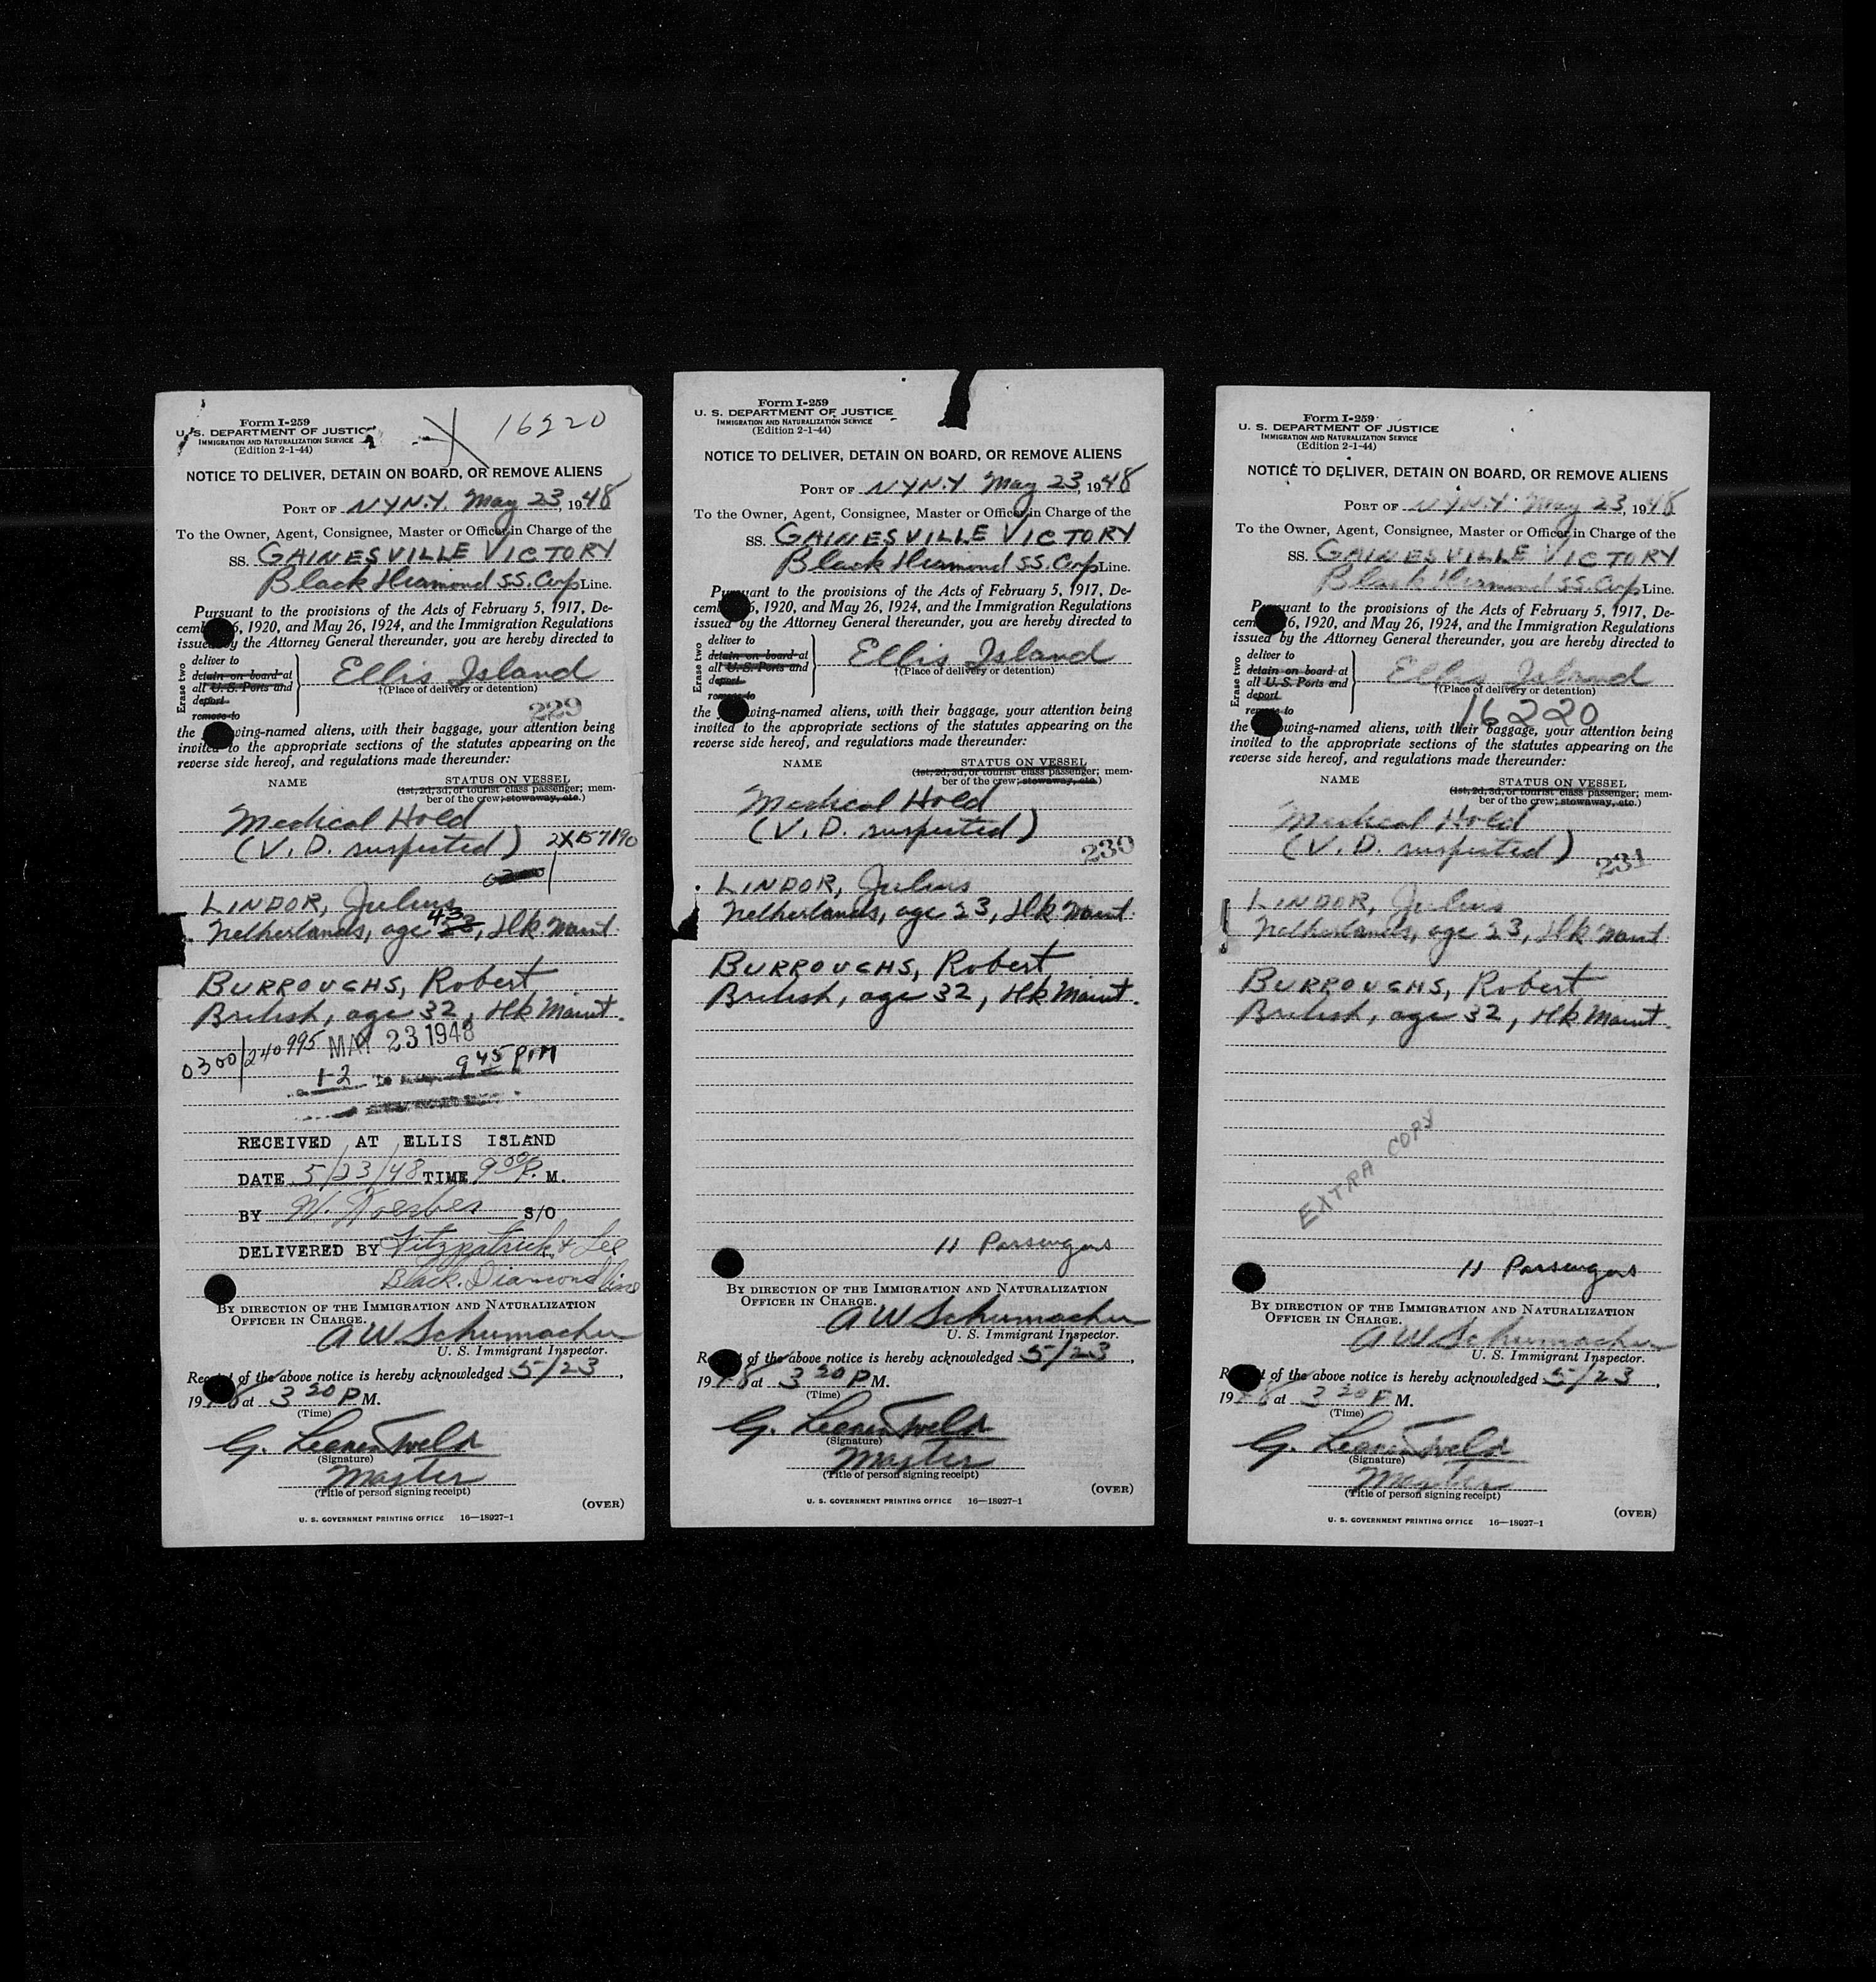 Form I-259
U. S. DEPARTMENT OF JUSTICE
IMMIGRATION AND NATURALIZATION SERVICE
(Edition 2-1-44)
16220
NOTICE TO DELIVER, DETAIN ON BOARD, OR REMOVE ALIENS
PORT OF NYN.Y. May 23, 1948
To the Owner, Agent, Consignee, Master or Officer in Charge of the
SS. GAINESVILLE VICTORY
Black Diamond SS. Corp Line.
Pursuant to the provisions of the Acts of February 5, 1917, De-
cem 6, 1920, and May 26, 1924, and the Immigration Regulations
issued by the Attorney General thereunder, you are hereby directed to
Erase two
deliver to
detain on board at
all U.S. Ports and
deport
remove to
Ellis Island
†(Place of delivery or detention)
229
the wing-named aliens, with their baggage, your attention being
invited to the appropriate sections of the statutes appearing on the
reverse side hereof, and regulations made thereunder:
NAME STATUS ON VESSEL
(1st, 2d, 3d, or tourist class passenger; mem-
ber of the crew; stowaway, etc.)
Medical Hold
(V. D. suspected)
LINDOR, Julius
Netherlands, age 23 43, Hk Maint.
BURROUGHS, Robert
British, age 32, Hk Maint.
0300/240995 MAY 23 1948
1-2 9 45 PM
RECEIVED AT ELLIS ISLAND
DATE 5/23/48 TIME 9 00 P. M.
BY W. Koerber S/O
DELIVERED BY Fitzpatrick & Lee
Black Diamond Line
BY DIRECTION OF THE IMMIGRATION AND NATURALIZATION
OFFICER IN CHARGE.
A W Schumacher
U. S. Immigrant Inspector.
Rec t of the above notice is hereby acknowledged 5/23,
1948 at 3 20 P M.
(Time)
G.
(Signature)
Master
(Title of person signing receipt)
(OVER)
U. S. GOVERNMENT PRINTING OFFICE 16—18927-1
Form I-259
U. S. DEPARTMENT OF JUSTICE
IMMIGRATION AND NATURALIZATION SERVICE
(Edition 2-1-44)
NOTICE TO DELIVER, DETAIN ON BOARD, OR REMOVE ALIENS
PORT OF NYN.Y May 23, 1948
To the Owner, Agent, Consignee, Master or Officer in Charge of the
SS. GAINESVILLE VICTORY
Black Diamond SS. Corp Line.
Pursuant to the provisions of the Acts of February 5, 1917, De-
cem 6, 1920, and May 26, 1924, and the Immigration Regulations
issued by the Attorney General thereunder, you are hereby directed to
Erase two
deliver to
detain on board at
all U.S. Ports and
deport
remove to
Ellis Island
†(Place of delivery or detention)
the wing-named aliens, with their baggage, your attention being
invited to the appropriate sections of the statutes appearing on the
reverse side hereof, and regulations made thereunder:
NAME STATUS ON VESSEL
(1st, 2d, 3d, or tourist class passenger; mem-
ber of the crew; stowaway, etc.)
Medical Hold
(V. D. suspected)
230
LINDOR, Julius
Netherlands, age 23, Hk Maint.
BURROUGHS, Robert
British, age 32, Hk Maint.
11 Passengers
BY DIRECTION OF THE IMMIGRATION AND NATURALIZATION
OFFICER IN CHARGE.
A W Schumacher
U. S. Immigrant Inspector.
R t of the above notice is hereby acknowledged 5/23,
1948 at 3 20 P M.
(Time)
G.
(Signature)
Master
(Title of person signing receipt)
(OVER)
U. S. GOVERNMENT PRINTING OFFICE 16—18927-1
Form I-259
U. S. DEPARTMENT OF JUSTICE
IMMIGRATION AND NATURALIZATION SERVICE
(Edition 2-1-44)
NOTICE TO DELIVER, DETAIN ON BOARD, OR REMOVE ALIENS
PORT OF NYN.Y. May 23, 1948
To the Owner, Agent, Consignee, Master or Officer in Charge of the
SS. GAINESVILLE VICTORY
Black Diamond SS. Corp Line.
Pursuant to the provisions of the Acts of February 5, 1917, De-
cem 6, 1920, and May 26, 1924, and the Immigration Regulations
issued by the Attorney General thereunder, you are hereby directed to
Erase two
deliver to
detain on board at
all U.S. Ports and
deport
remove to
Ellis Island
†(Place of delivery or detention)
16220
the wing-named aliens, with their baggage, your attention being
invited to the appropriate sections of the statutes appearing on the
reverse side hereof, and regulations made thereunder:
NAME STATUS ON VESSEL
(1st, 2d, 3d, or tourist class passenger; mem-
ber of the crew; stowaway, etc.)
Medical Hold
(V. D. suspected)
231
LINDOR, Julius
Netherlands, age 23, Hk Maint.
BURROUGHS, Robert
British, age 32, Hk Maint.
EXTRA COPY
11 Passengers
BY DIRECTION OF THE IMMIGRATION AND NATURALIZATION
OFFICER IN CHARGE.
A W Schumacher
U. S. Immigrant Inspector.
R t of the above notice is hereby acknowledged 5/23,
1948 at 3 20 P M.
(Time)
G.
(Signature)
Master
(Title of person signing receipt)
(OVER)
U. S. GOVERNMENT PRINTING OFFICE 16—18927-1